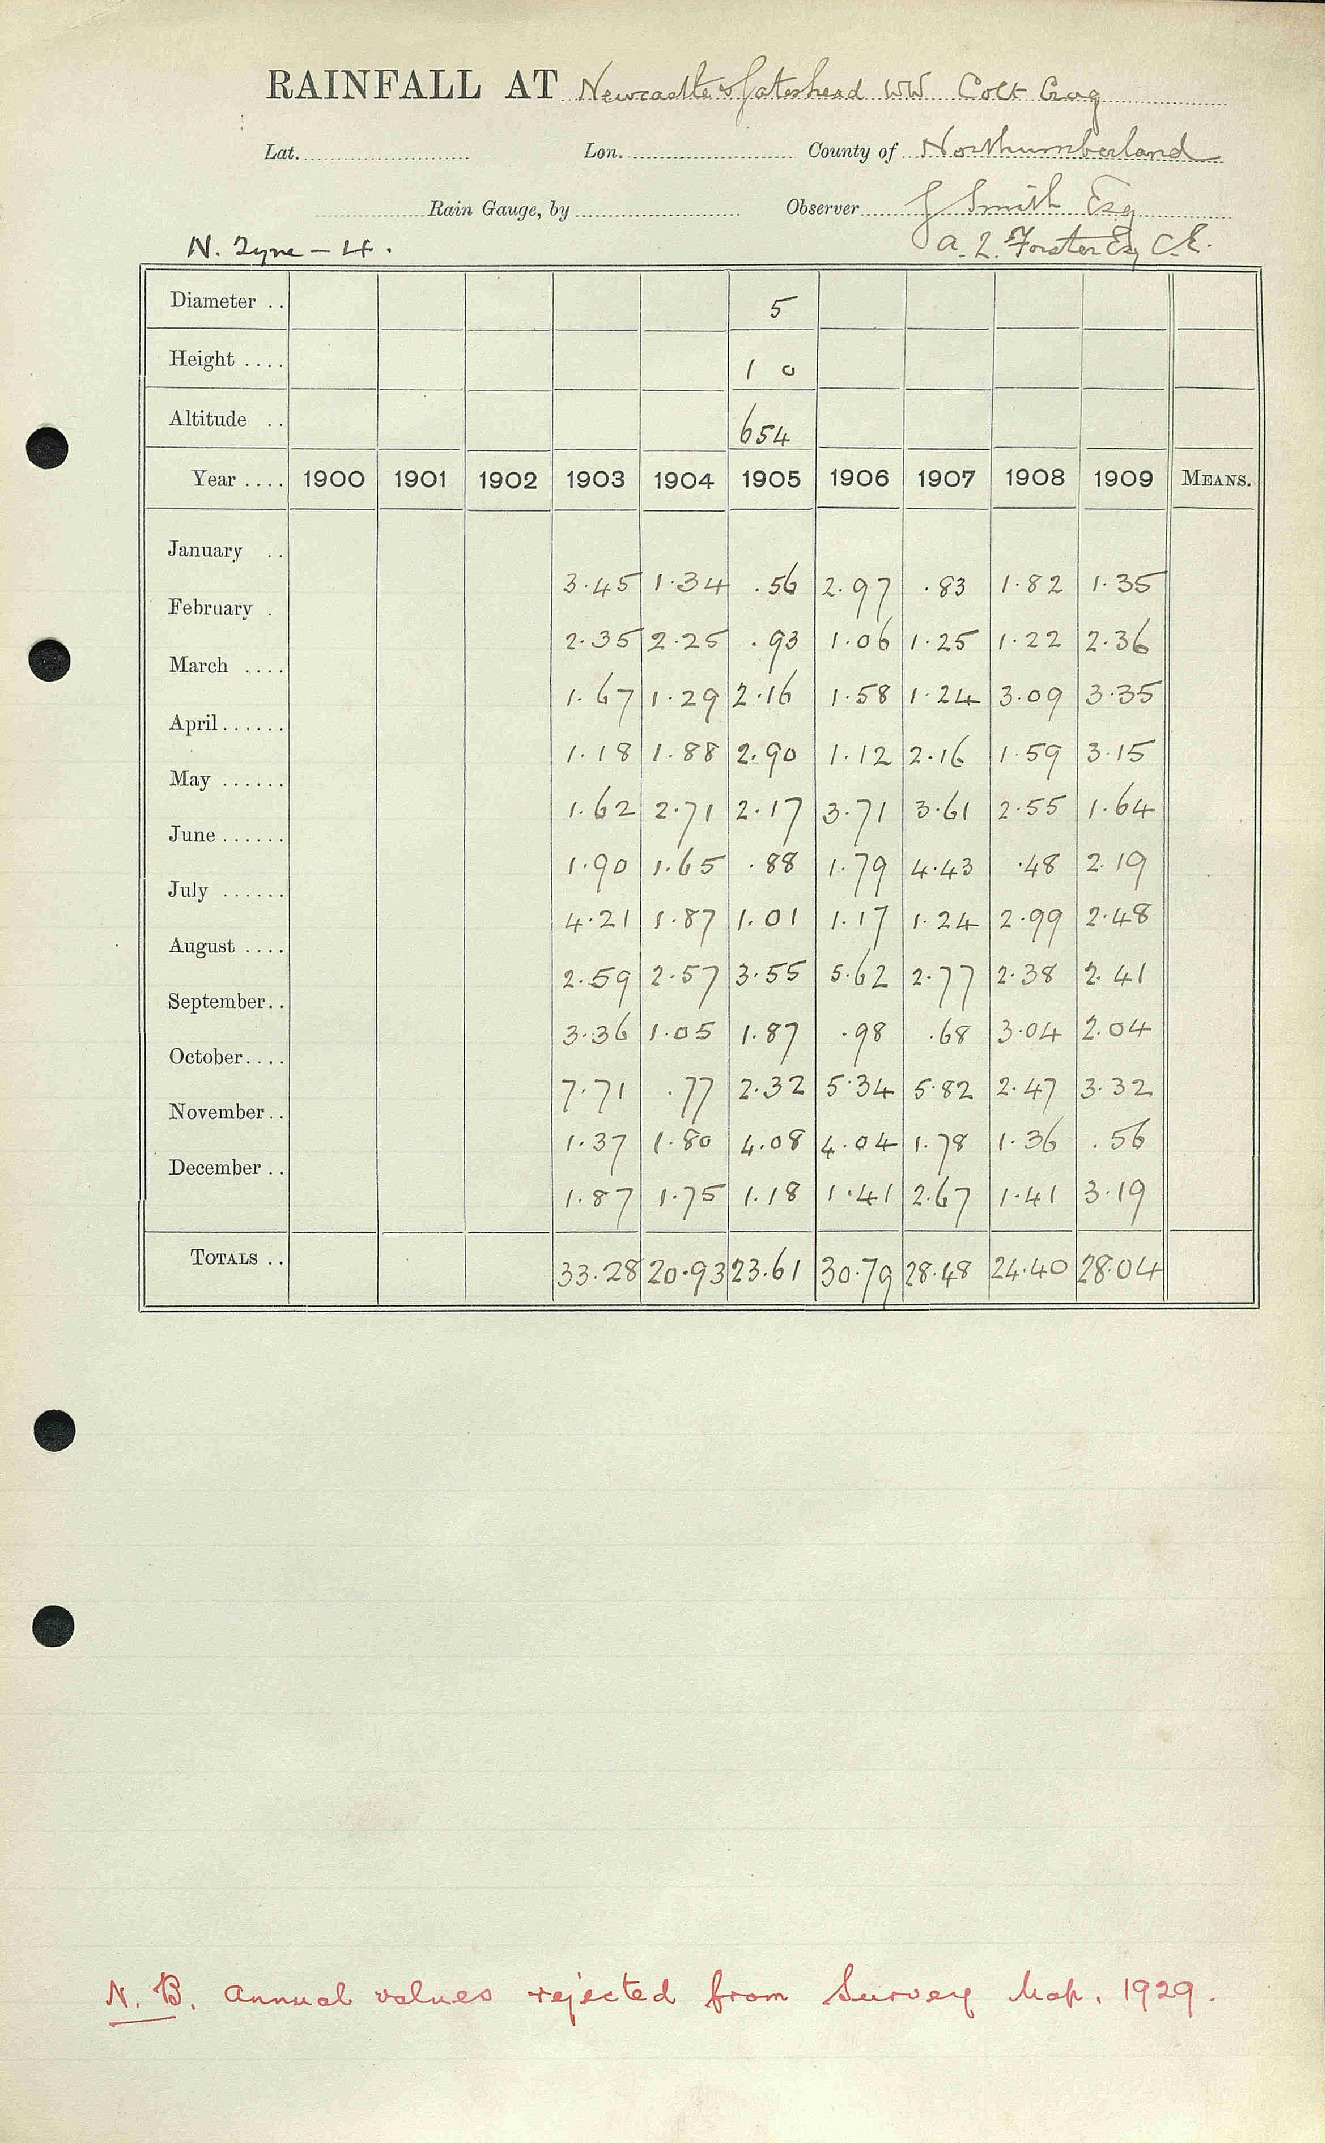 RAINFALL AT Newcastle & Gateshead WW Colt Crag
Lat. Lon. County of Northumberland
Rain Gauge, by Observer J Smith Esq
N. Tyne – 4. A. L. Forster Esq C.E.
Diameter .. 5
Height .... 1 0
Altitude .. 654
Year .... 1900 1901 1902 1903 1904 1905 1906 1907 1908 1909 MEANS.
January .. 3.45 1.34 .56 2.97 .83 1.82 1.35
February . 2.35 2.25 .93 1.06 1.25 1.22 2.36
March .... 1.67 1.29 2.16 1.58 1.24 3.09 3.35
April...... 1.18 1.88 2.90 1.12 2.16 1.59 3.15
May ...... 1.62 2.71 2.17 3.71 3.61 2.55 1.64
June ...... 1.90 1.65 .88 1.79 4.43 .48 2.19
July ...... 4.21 1.87 1.01 1.17 1.24 2.99 2.48
August .... 2.59 2.57 3.55 5.62 2.77 2.38 2.41
September.. 3.36 1.05 1.87 .98 .68 3.04 2.04
October.... 7.71 .77 2.32 5.34 5.82 2.47 3.32
November.. 1.37 1.80 4.08 4.04 1.78 1.36 .56
December .. 1.87 1.75 1.18 1.41 2.67 1.41 3.19
TOTALS .. 33.28 20.93 23.61 30.79 28.48 24.40 28.04
N. B. Annual values rejected from Survey Map. 1929.